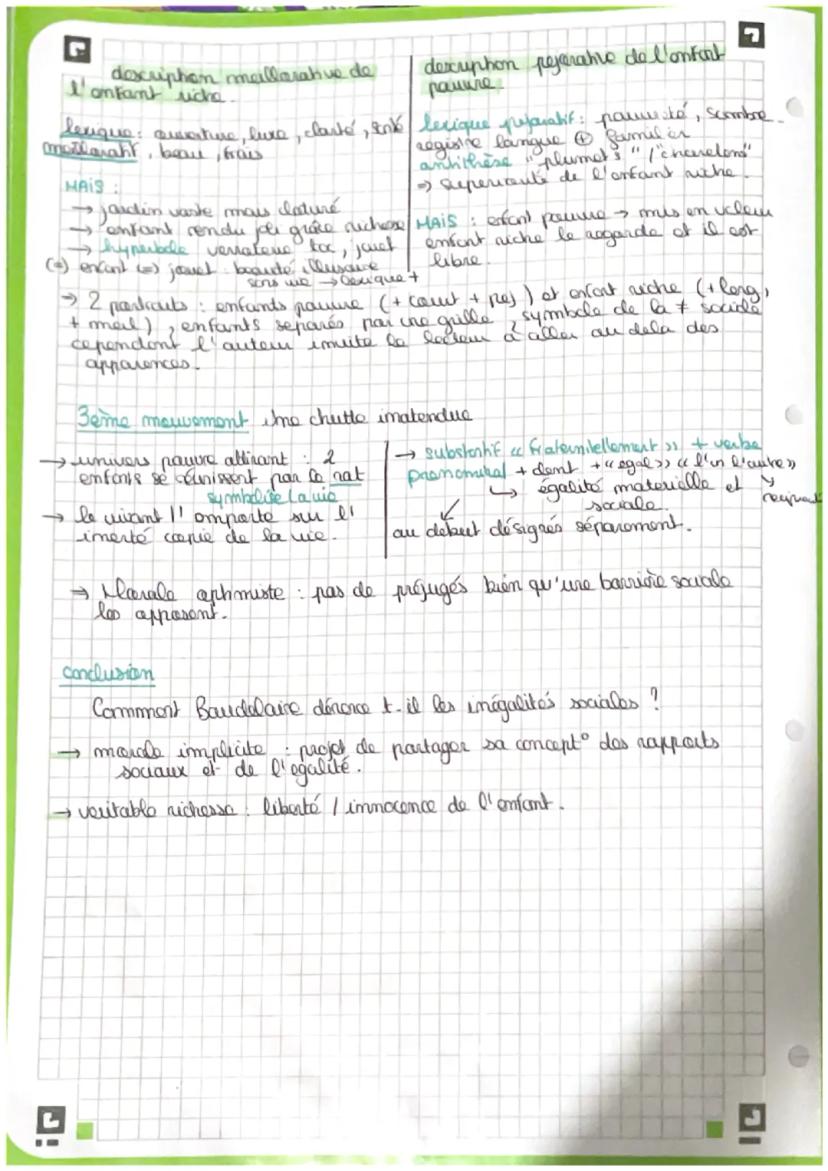 description méliorative de
l'enfant riche.
lexique : ouverture, luxe, clarté,
mélioratif, beau, frais
MAIS :
→ jardin vaste mais cloturé
→ enfant rendu joli grâce richesse
→ hyperbole vernateur toc, jouet
(=) enfant (=) jouet beauté illusoire
sens vie → lexique +
description pejorative de l'enfant
pauvre
lexique pejoratif : pauvreté, sombre
registre langue ⊕ familier
antithèse "plumets" / "chardons"
⇒ superiorité de l'enfant riche.
MAIS : enfant pauvre → mis en valeur
enfant riche le regarde et il est
libre.
→ 2 portraits : enfants pauvre (+ court + pej) et enfant riche (+ long,
+ mel), enfants separés par une grille, symbole de la ≠ sociale
cependant l'auteur invite le lecteur à aller au dela des
apparences.
3eme mouvement Une chutte inatendue
→ univers pauvre attirant : 2
enfants se réunissent par le rat
symbolise la vie
→ le vivant l'emporte sur l'
inerté copie de la vie.
→ substantif « fraternellement » + verbe
pronominal + dent + « egal » « l'un l'autre »
↳ égalité materielle et
sociale.
au debut désignés séparement.
⇒ Morale optimiste : pas de préjugés bien qu'une barrière sociale
les opposent.
conclusion
Comment Baudelaire dénonce t-il les inégalités sociales ?
→ morale implicite : projet de partager sa concept° des rapports
sociaux et de l'egalité.
→ veritable richesse : liberté / innocence de l'enfant.